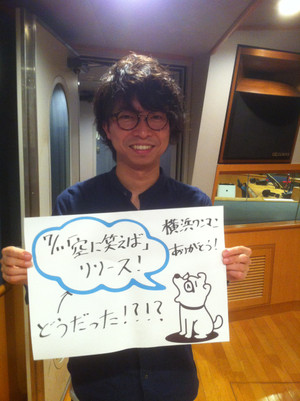 7/11「空に笑えば」
リリース!
どうだった!?!?
横浜ワンマン
ありがとう!